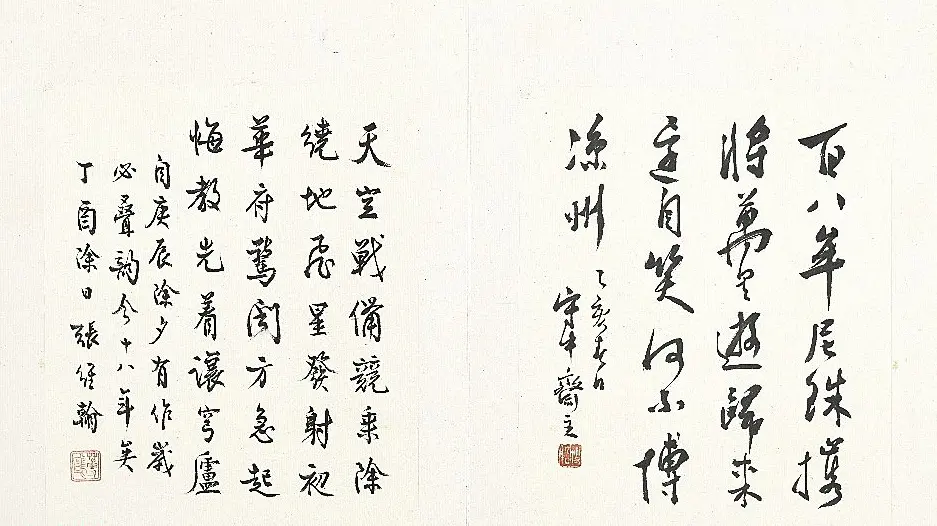 百八牟尼珠攜
將萬里遊歸來
還自笑何不博
涼州
乙亥春日
齋主
天空戰備競乘除
繞地飛星發射初
華府驚聞方急起
悔教先着讓穹廬
自庚辰除夕有作歲
必疊韻今十八年矣
丁酉除日張維翰